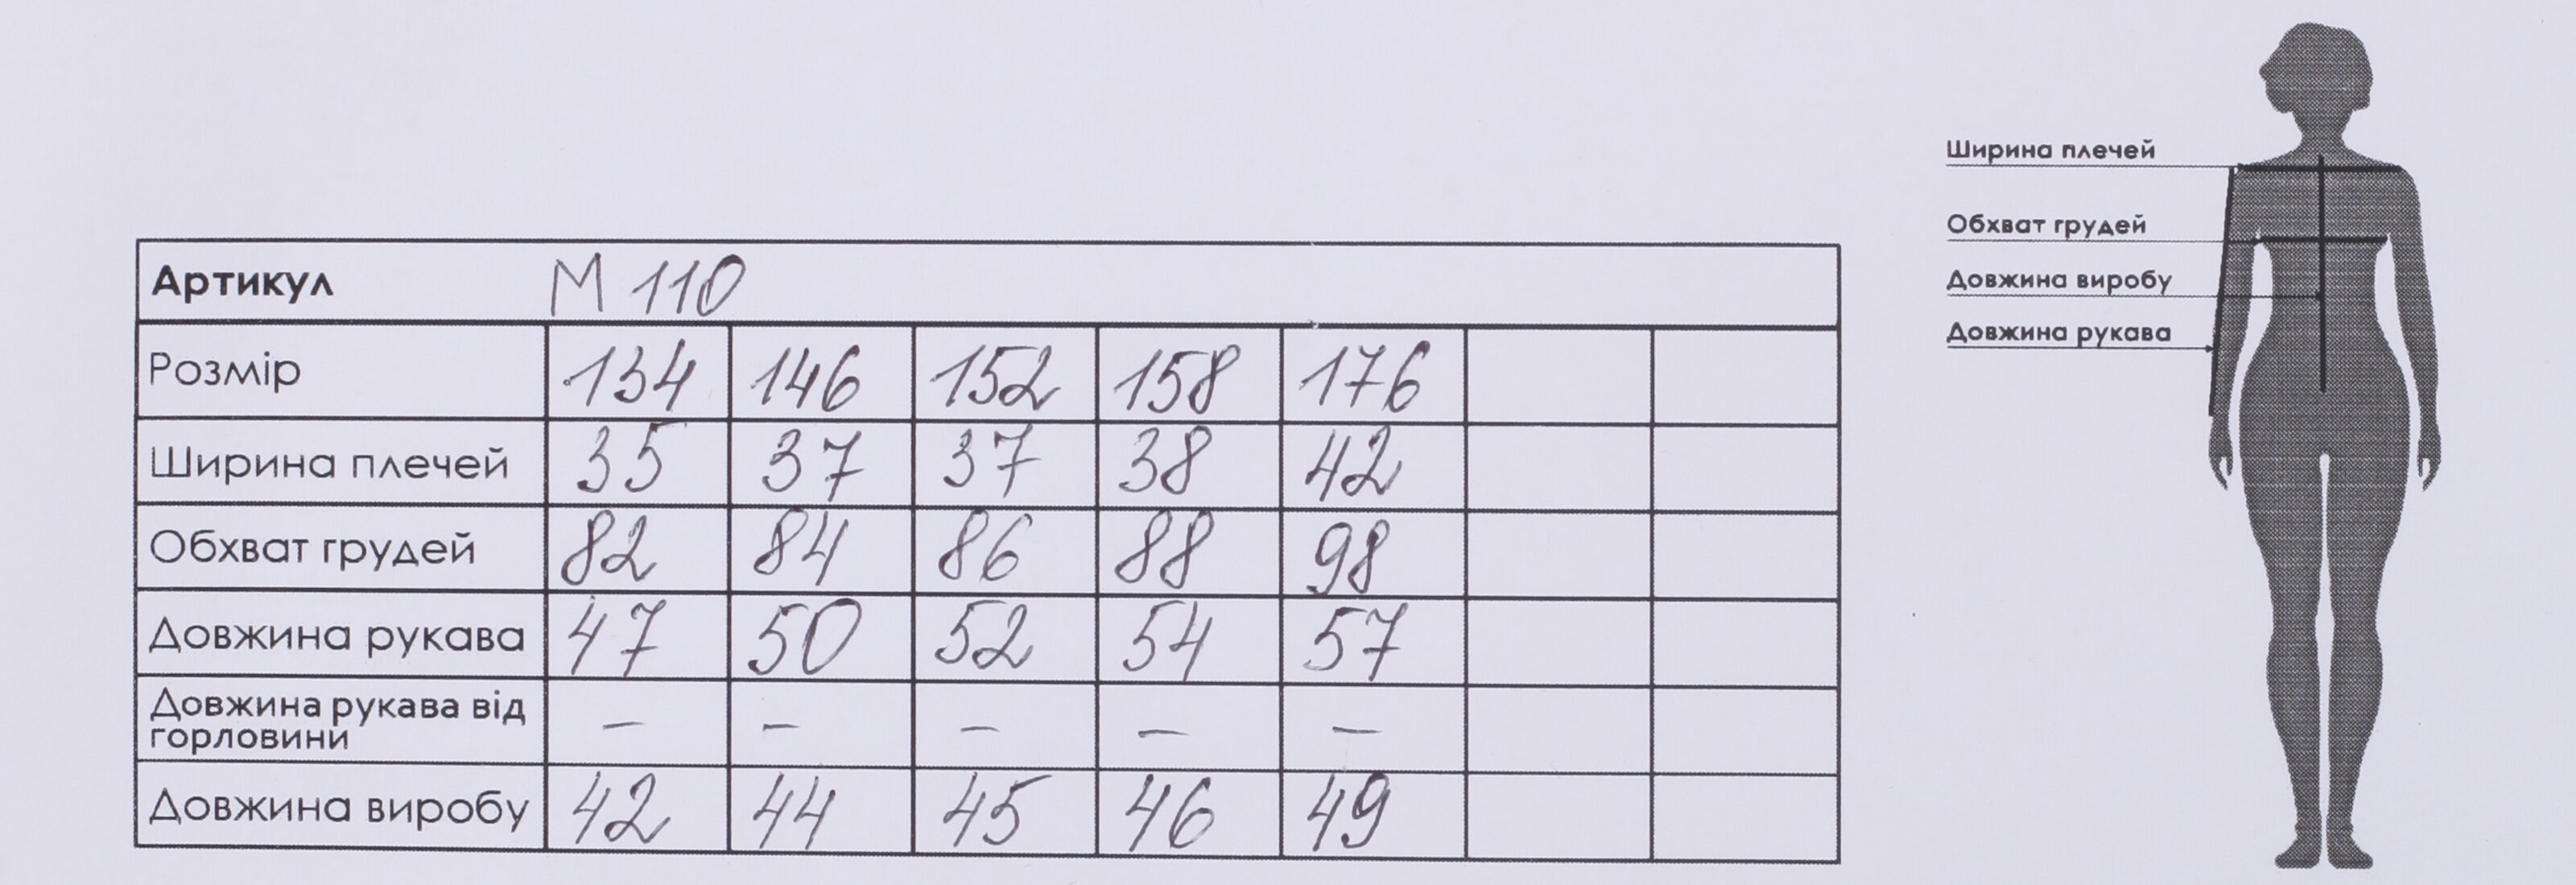 Артикул M 110
Розмір 134 146 152 158 176
Ширина плечей 35 37 37 38 42
Обхват грудей 82 84 86 88 98
Довжина рукава 47 50 52 54 57
Довжина рукава від
горловини – – – – –
Довжина виробу 42 44 45 46 49
Ширина плечей
Обхват грудей
Довжина виробу
Довжина рукава